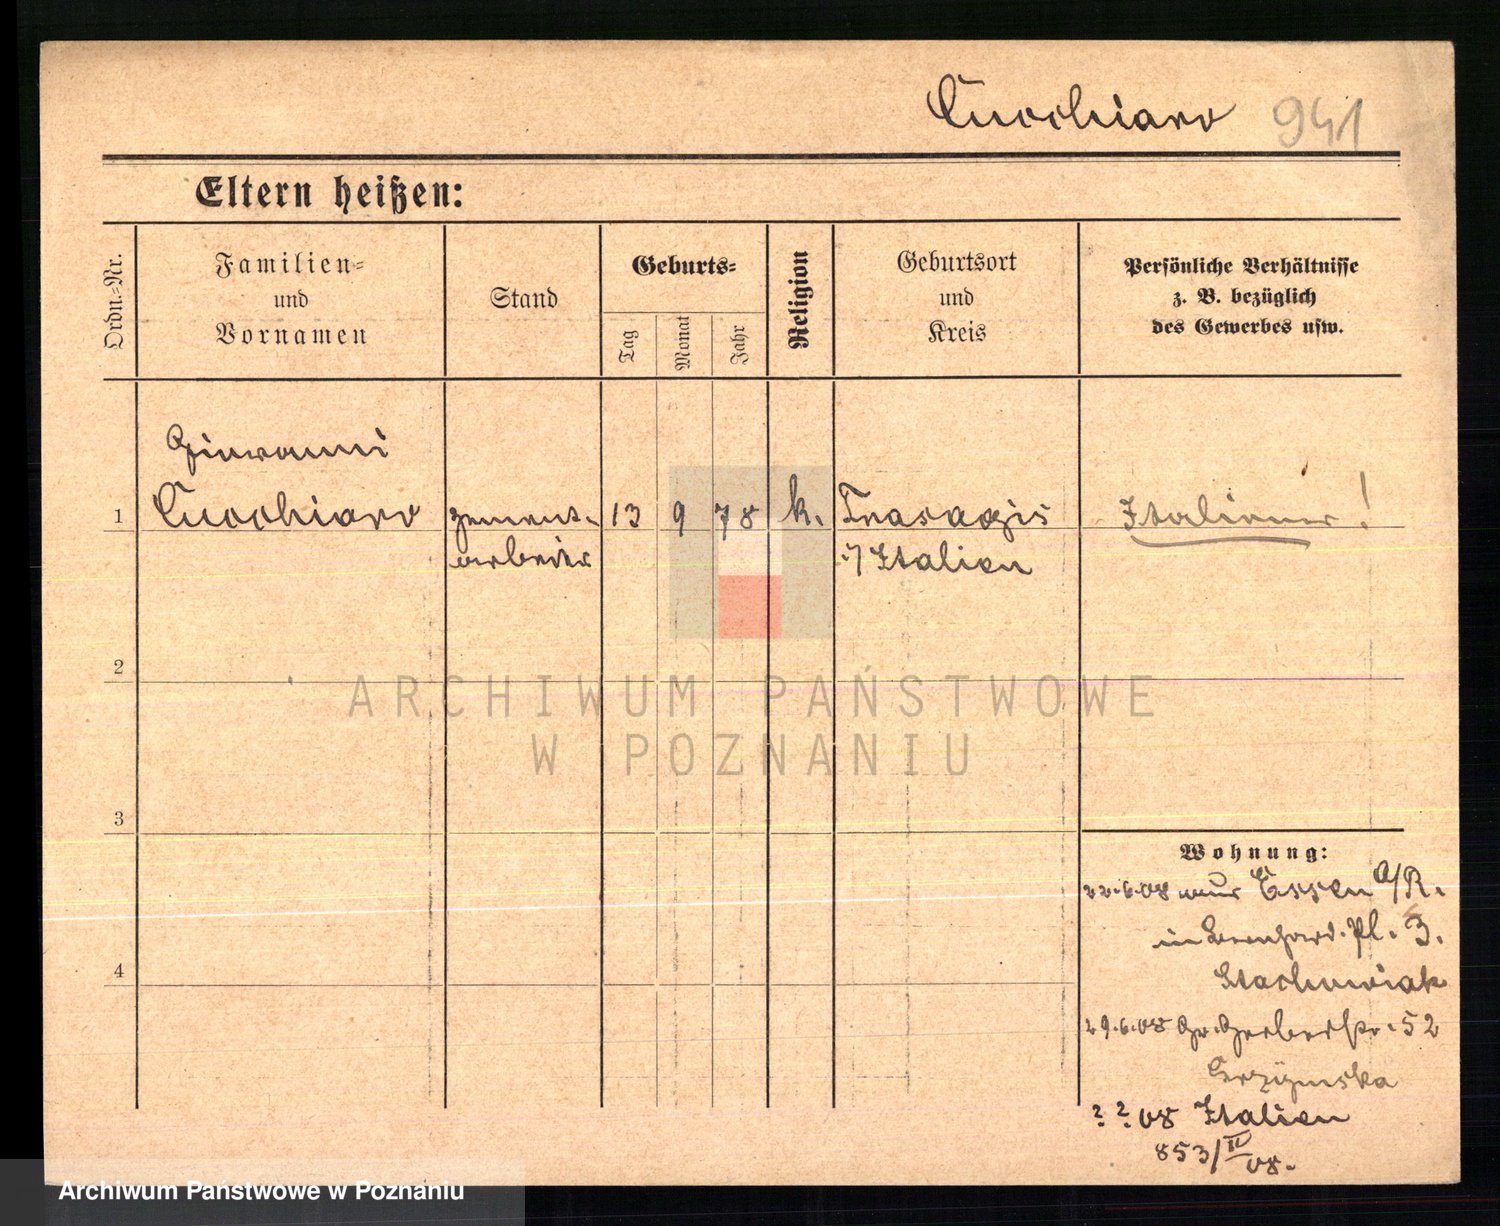 Cucchiaro 941
Eltern heißen:
Ordn.-Nr.
Familien-
und
Vornamen
Stand
Geburts-
Tag
Monat
Jahr
Religion
Geburtsort
und
Kreis
Persönliche Verhältnisse
z. B. bezüglich
des Gewerbes usw.
Giovanni
1 Cucchiaro Zement- 13 9 78 k. Trasagis Italiener!
arbeiter i/ Italien
2
ARCHIWUM PAŃSTWOWE
W POZNANIU
3
Wohnung:
22.6.08 aus Essen a/R.
in Bernhard. Pl. 3.
Stachowiak
4
29.6.08 Gr. Gerberstr. 52
? ? 08 Italien
853/IV 08.
Archiwum Państwowe w Poznaniu